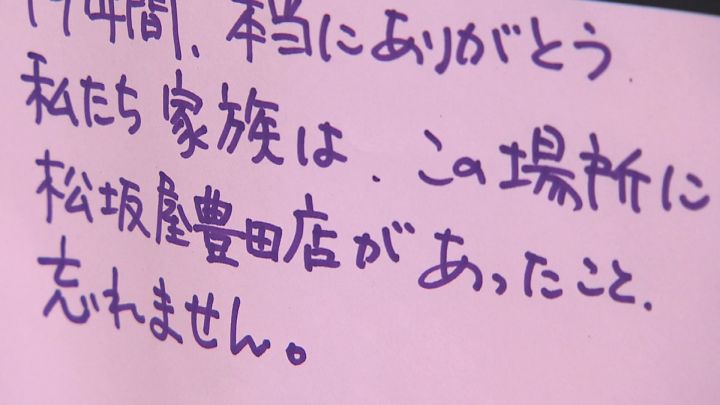 年間、本当にありがとう
私たち家族は、この場所に
松坂屋豊田店があったこと、
忘れません。